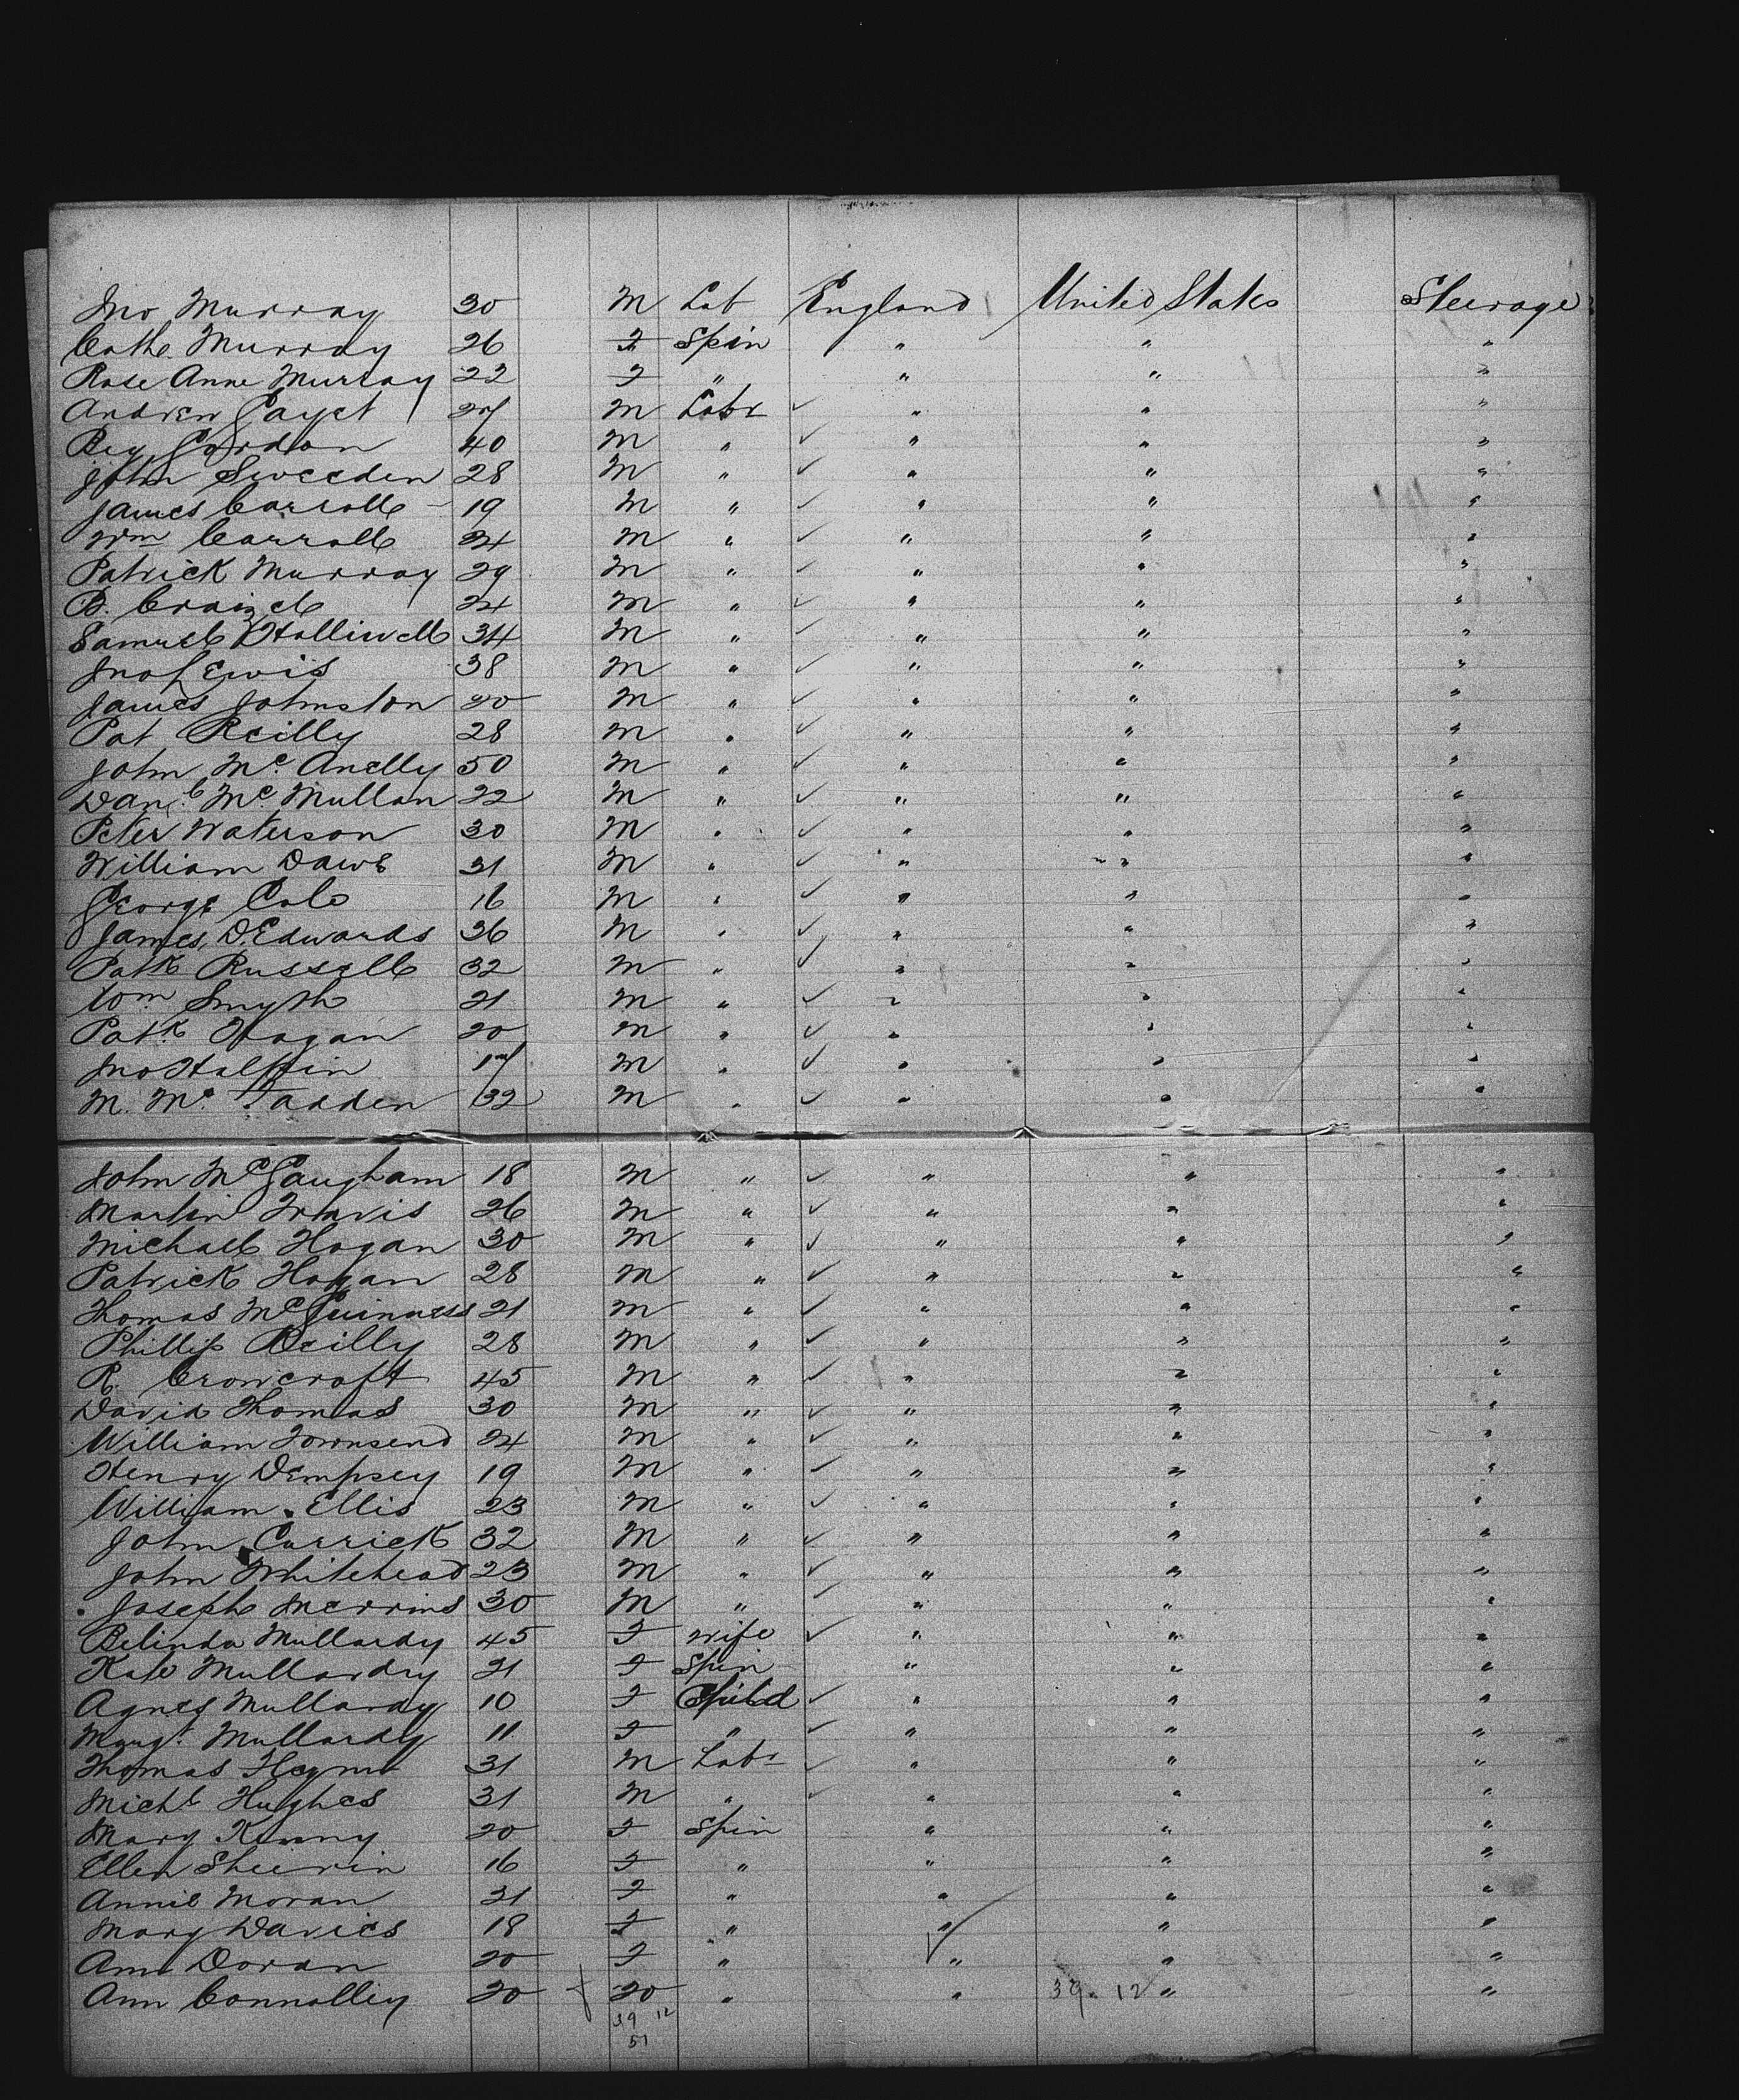 Jno Murray 30 M Lab England United States Steerage
Cathe. Murray 26 F Spin " " "
Rose Anne Murray 22 F " " " "
Andrew 27 M Labr ✓ " " "
Gordon 40 M " ✓ " " "
John Sweeden 28 M " ✓ " " "
James Carroll 19 M " ✓ " " "
Wm Carroll 24 M " ✓ " " "
Patrick Murray 29 M " ✓ " " "
24 M " ✓ " " "
Samuel Holliwell 34 M " ✓ " " "
Jno Lewis 38 M " ✓ " " "
James Johnston 20 M " ✓ " " "
Pat Reilly 28 M " ✓ " " "
John Mc Anelly 50 M " ✓ " " "
Danl. Mc Mullan 22 M " ✓ " " "
Peter Waterson 30 M " ✓ " " "
William Daws 31 M " ✓ " " "
George Cole 16 M " ✓ " " "
James D. Edwards 36 M " ✓ " " "
Patk Russell 32 M " ✓ " " "
Wm Smyth 21 M " ✓ " " "
Patk Hagan 20 M " ✓ " " "
Jno Halpin 17 M " ✓ " " "
M. Mc Fadden 32 M " ✓ " " "
John McGaugham 18 M " ✓ " " "
Martin Travis 26 M " ✓ " " "
Michael Hogan 30 M " ✓ " " "
Patrick Hogan 28 M " ✓ " " "
Thomas McGuinness 21 M " ✓ " " "
Phillip Reilly 28 M " ✓ " " "
R. Crowcroft 45 M " ✓ " " "
David Thomas 30 M " ✓ " " "
William Townsend 24 M " ✓ " " "
Henry Dempsey 19 M " ✓ " " "
William Ellis 23 M " ✓ " " "
John Currick 32 M " ✓ " " "
John Whitehead 23 M " ✓ " " "
Joseph Merrins 30 M " ✓ " " "
Belinda Mullardy 45 F Wife ✓ " " "
Kate Mullardy 21 F Spin " " "
Agnes Mullardy 10 F Child ✓ " " "
Margt. Mullardy 11 F " ✓ " " "
Thomas 31 M Labr ✓ " " "
Michl Hughes 31 M " ✓ " " "
Mary 20 F Spin " " "
Ellen 16 F " " " "
Annie Moran 21 F " " " "
Mary Davies 18 F " " " "
Ann Doran 20 F " " " "
Ann Connolley 20 f 20 " " 39 . 12 " "
39 12
51